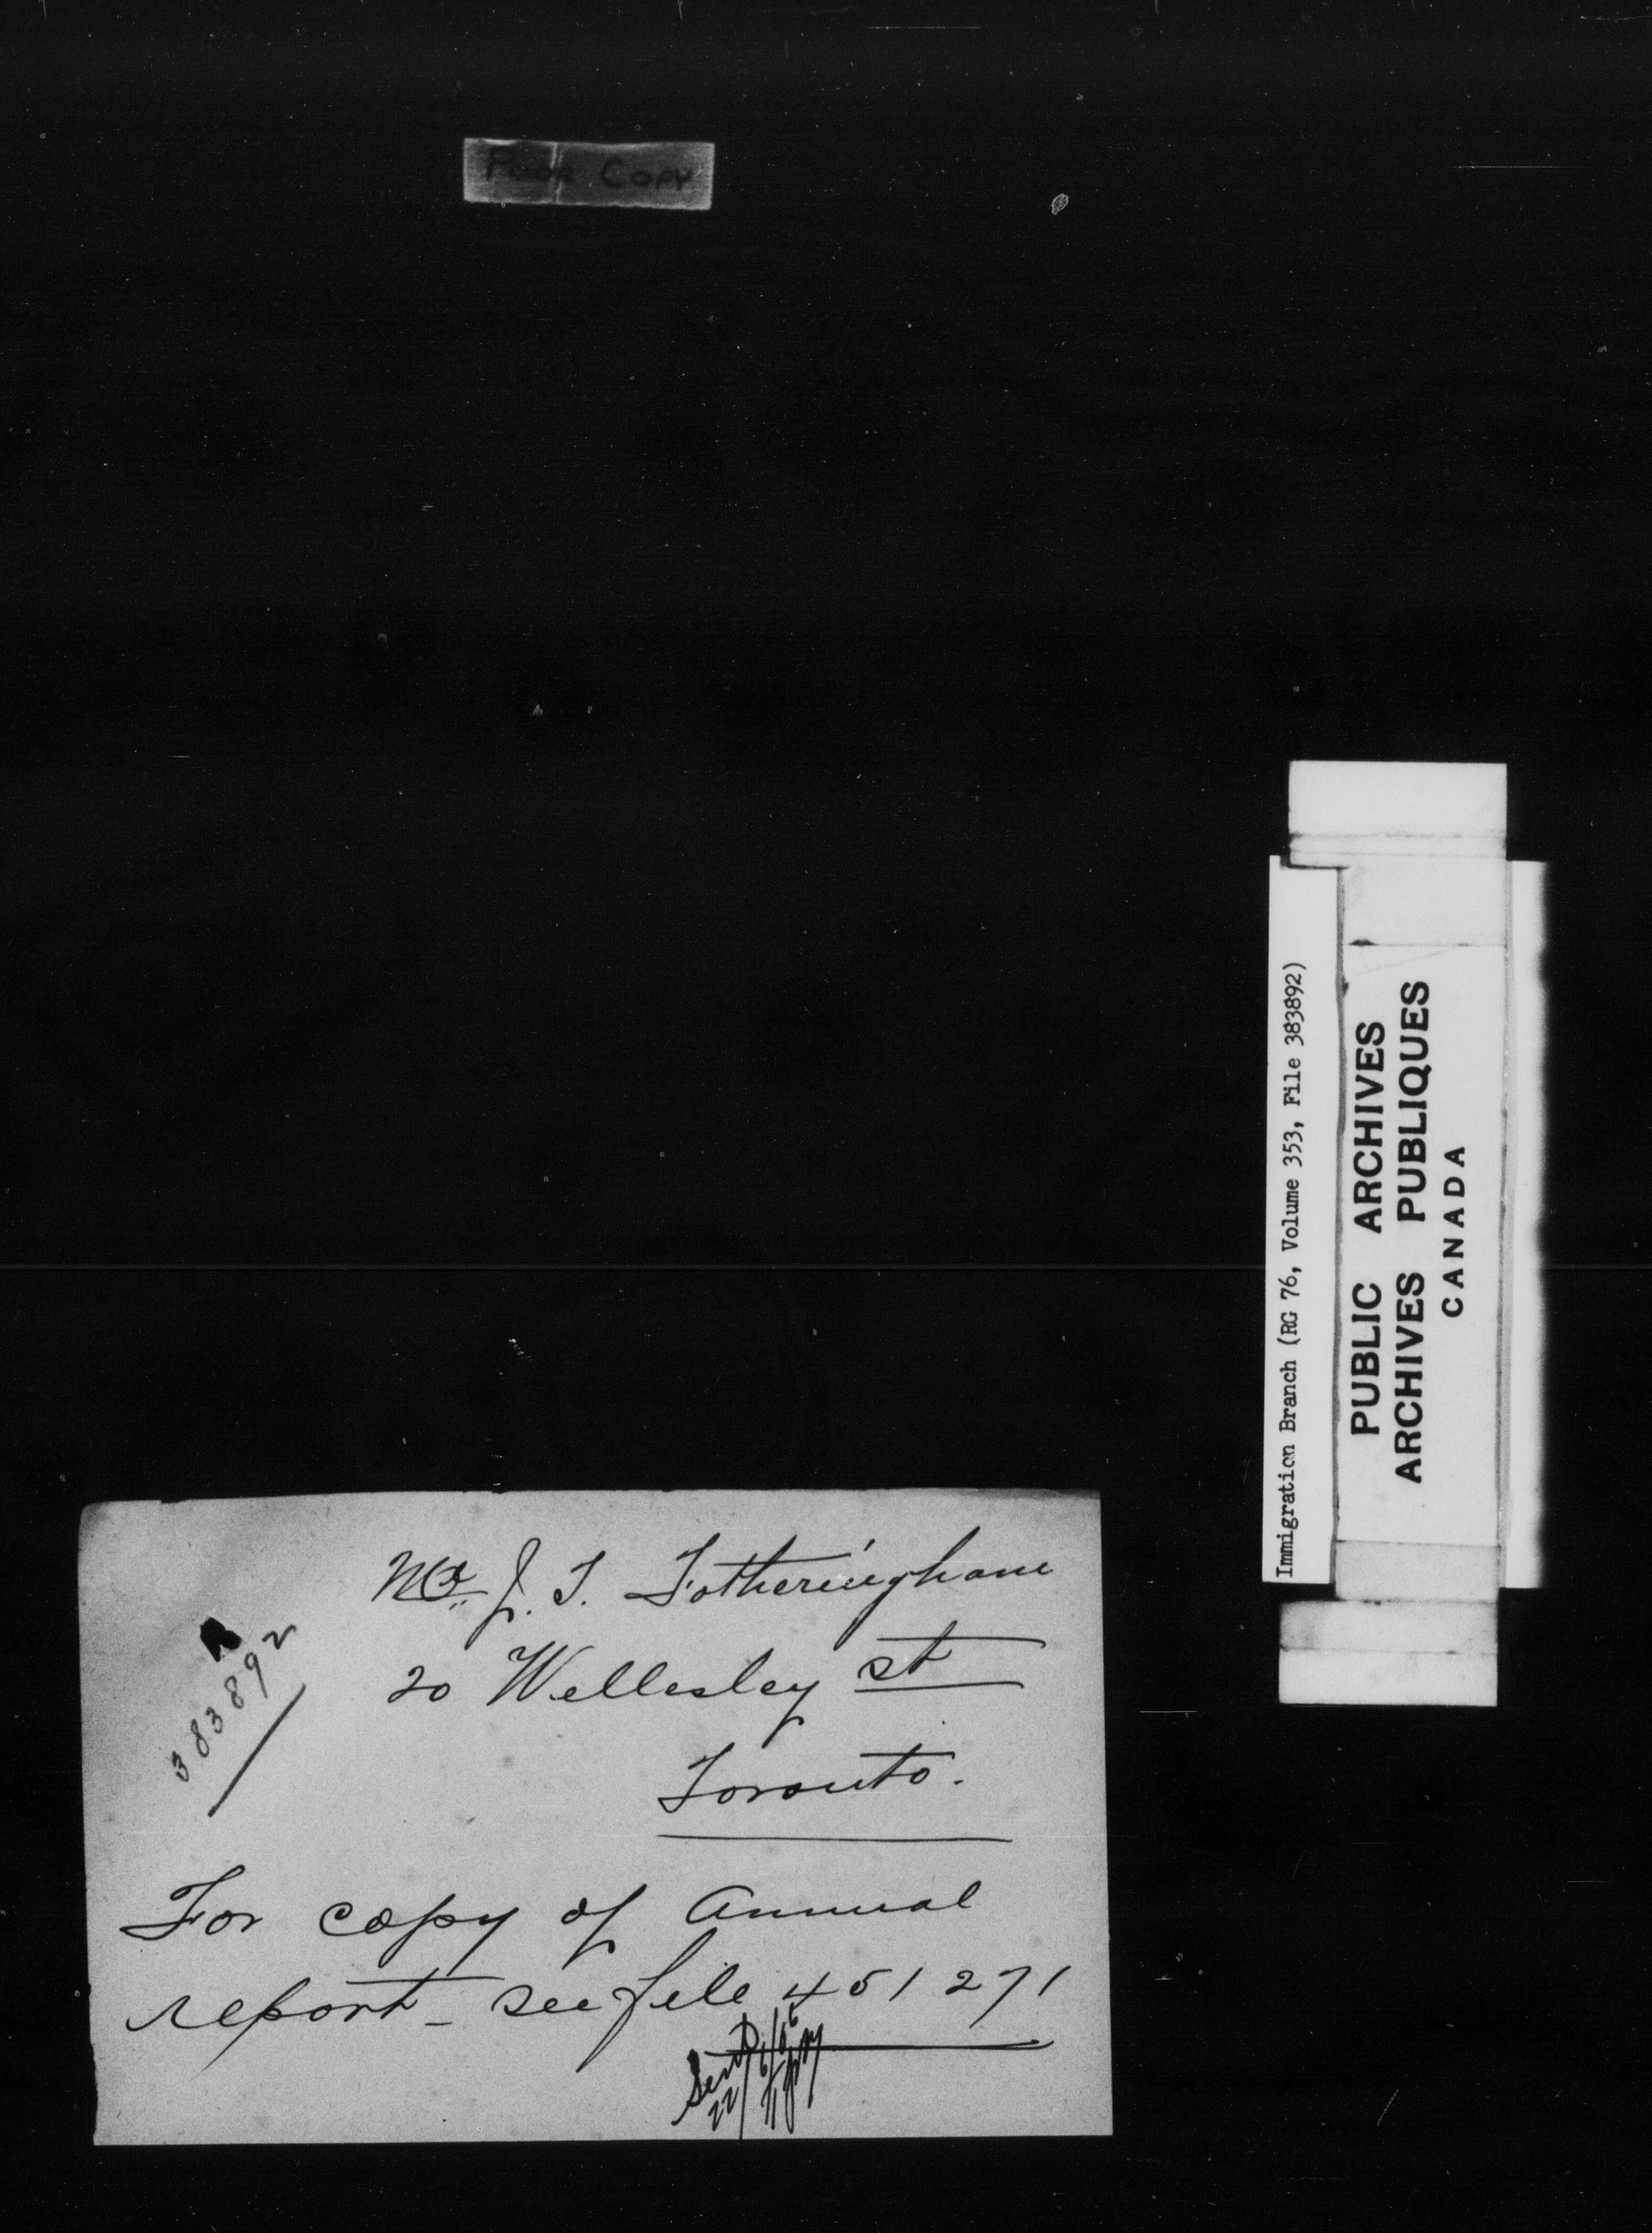 Poor Copy
Immigration Branch (RG 76, Volume 353, File 383892)
PUBLIC ARCHIVES
ARCHIVES PUBLIQUES
CANADA
383892
Mr. J. T. Fotheringham
20 Wellesley St
Toronto.
For copy of Annual
report - see file 451271
Sent
22/6/06